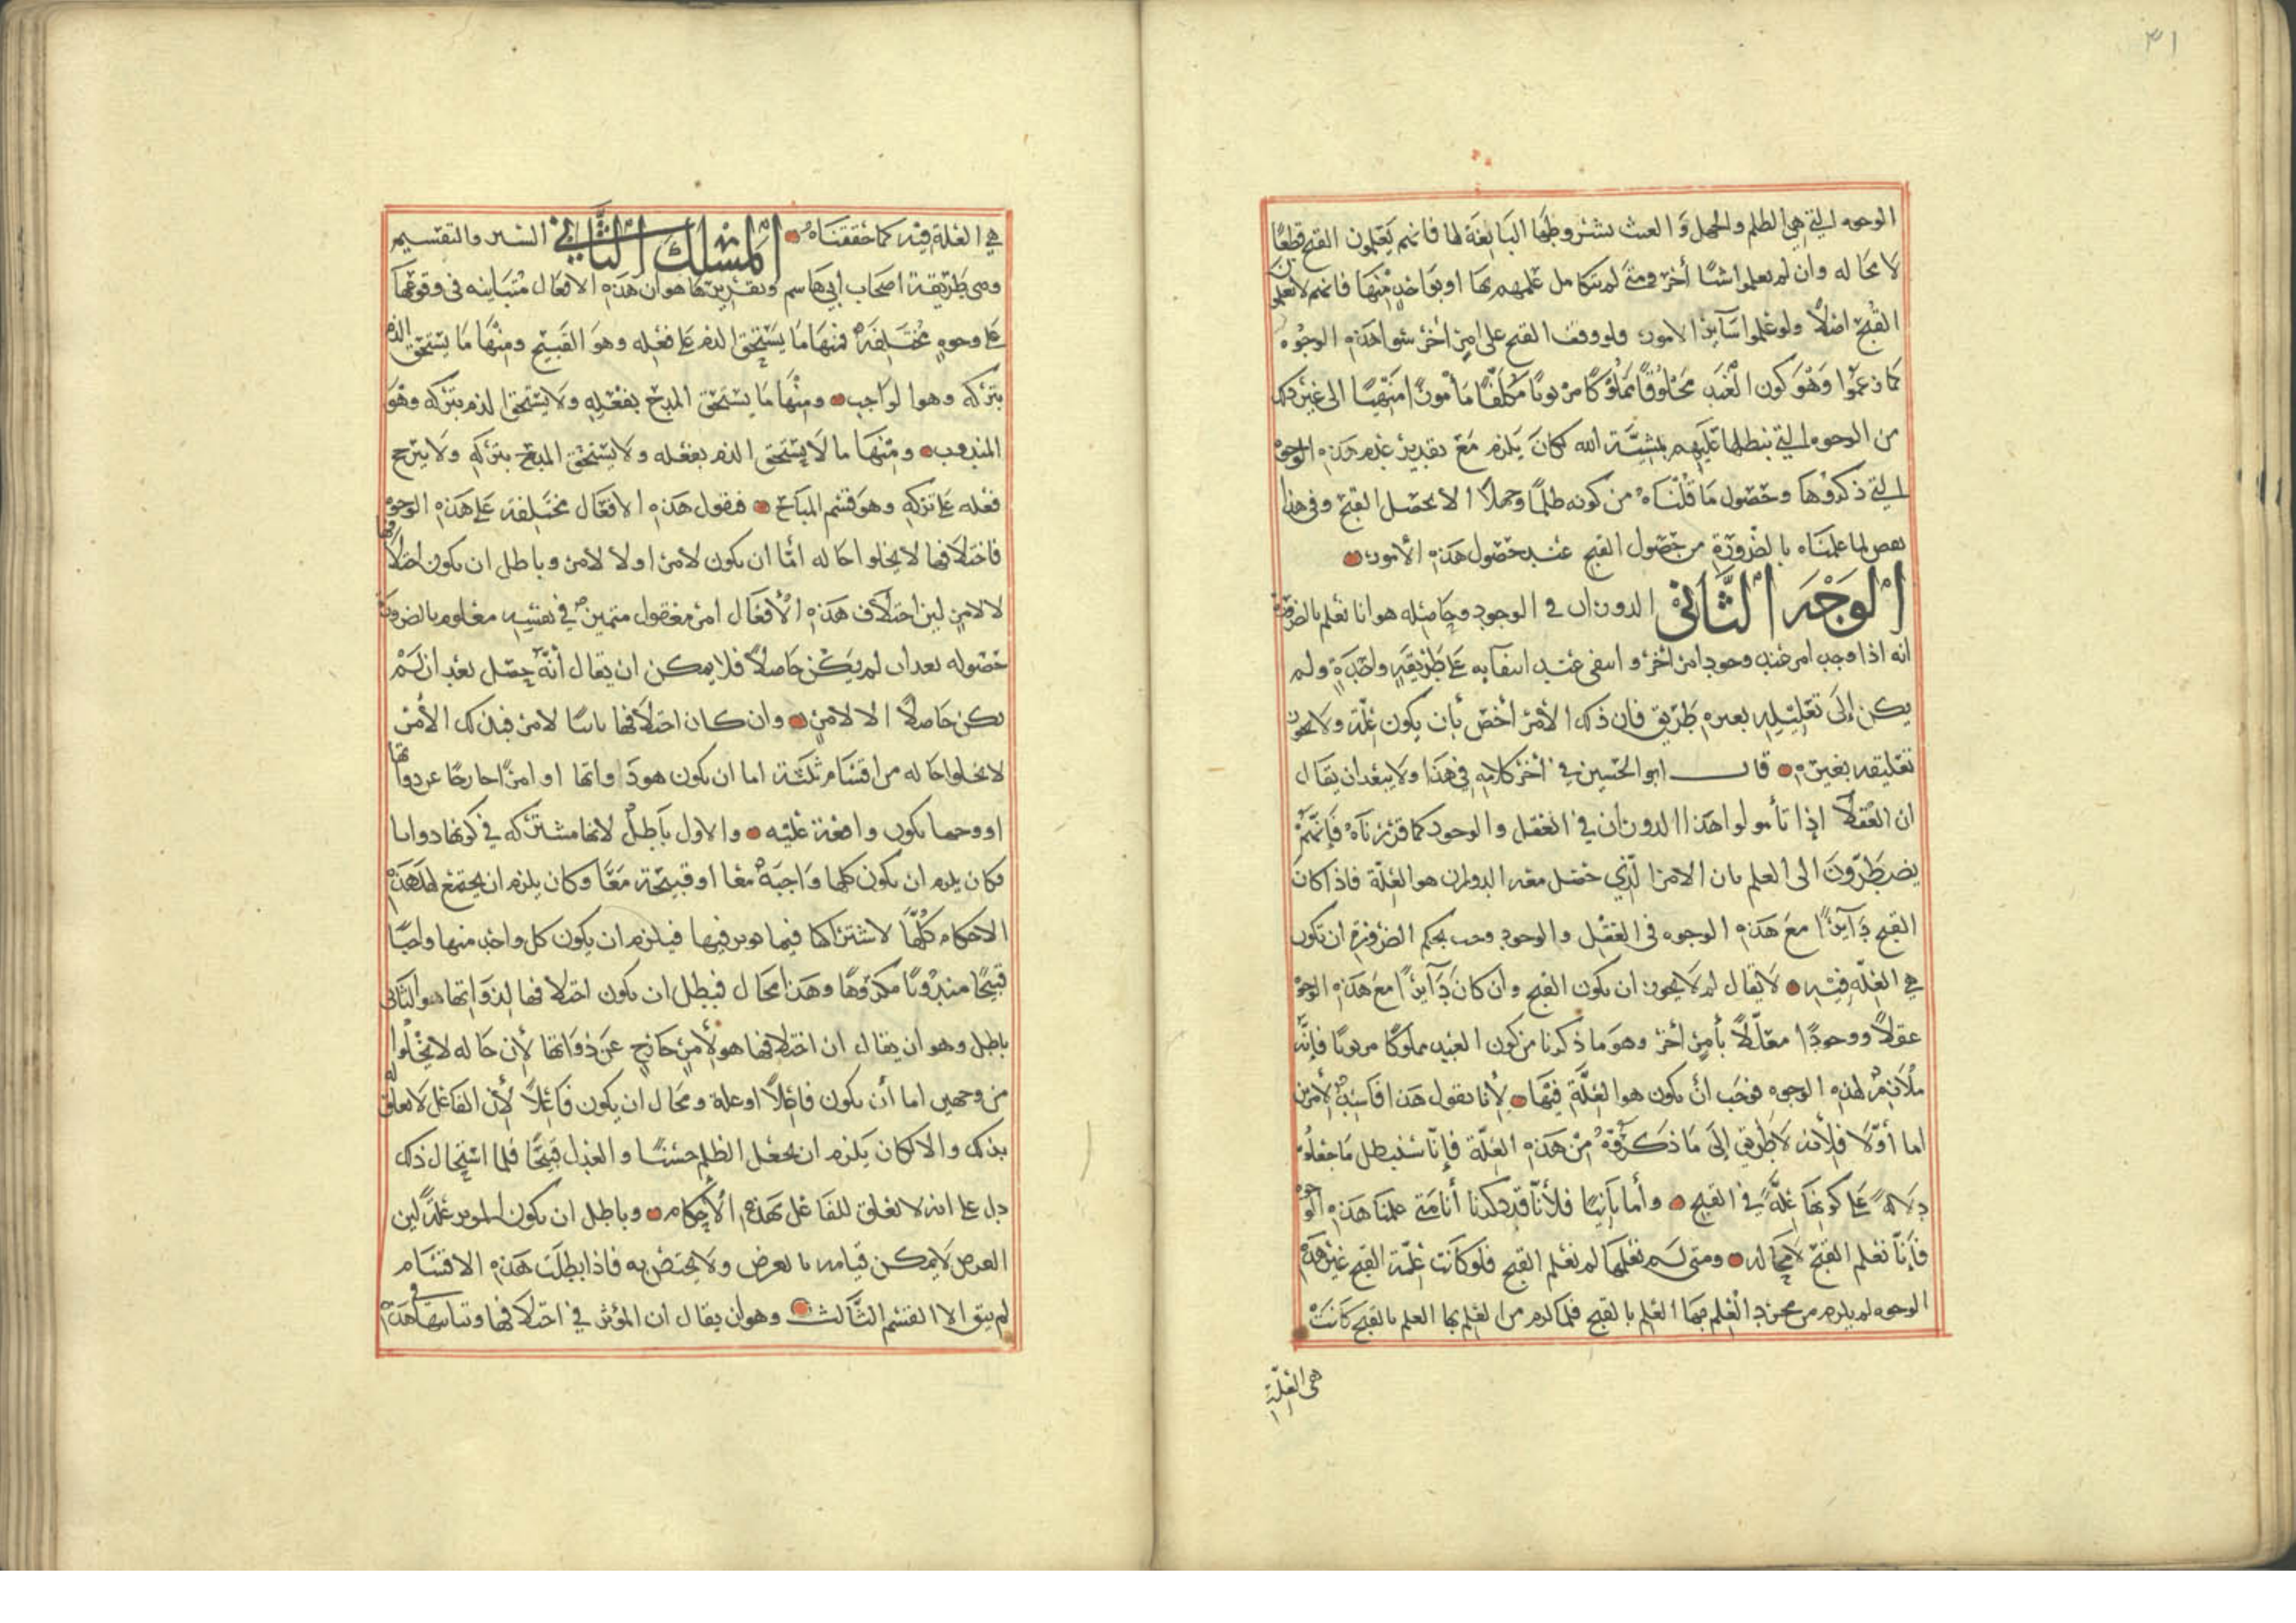 ٣١
الوجوه التي هي الظلم والجهل وَ العبث بشروطها التابعَة لها فانهم يَعْلمون القبح قطعًا
لا محاله وان لم يعلموا شيئًا أخر ومتى لم يتكامل علمهم بها او بواحدٍ منها فانهم لا يعلمون
القُبحَ اصْلاً ولو علموا سَآئر الامور ولو وقف القبح على امرٍ أخر سوا هذه الوجُوه
كما زعموا وَهْوَ كون العَبْد مَخلوُقًا مَملوُكًا مربوبًا مكلَّفًا مَأمورًا منهيًا الى غير ذلك
من الوجوه التي نبطلها عَليهم بمشيَّة الله لكانَ يَلزم مَعَ تقدير عَدم هذه الوجوه
التي ذكروها وحصُول مَا قُلْنَاه من كونه ظلمًا وجهلاً الا يحصل القبح وفي هذا
نقص لما علمنَاه بالضرورَة من حصُول القبح عند حصُول هذه الأمور
الوَجْه الثَّاني الدوران في الوجود وحَاصله هو انا نعلم بالضرورة
انه اذا وجب امر عند وجود امر أخر وانتفى عند انتفآيه عَلى طَريقَةٍ واحدَةٍ ولم
يكن إلَى تعْليله بغيره طَريق فان ذلك الأمر أخصّ بأن يكون علّة ولا يجوز
تعليقه بغيره قال ابو الحسين في أخر كلامه في هَذا ولا يبعد ان يقال
ان العُقلآ اذا تأملوا هذا الدوران في العَقل والوجود كما قررنَاهُ فَإنَّهُمْ
يضطَرّونَ الى العلم بان الامر الّذي حصَل معَه الدوران هو العلّة فاذا كانَ
القبح دَآيرًا معَ هَذه الوجوه فى العَقْل والوجود وجب بحكم الضرورة ان تكون
هي العلّة فيْه لا يقال لم لا يجوز ان يكون القبح وان كان دَآيرًا مَعَ هَذه الوجوه
عقولاً ووجودًا معَلّلاً بأمرٍ أخر وهوَ ما ذكرنا من كون العَبْد مملوكًا مربوبًا فإنّه
مُلاَزِمٌ لهذه الوجوه فوجَب انْ يكون هو العلَّة فيْهَا لأنا نقول هَذا فَاسِدٌ لأمرين
اما أوّلا فلأنه لا طَريق إلَى مَا ذَكرتموهُ من هَذه العلّة فإنّا سنبطل مَا جعَلوُه
دلاَلةً عَلى كونهَا علَّةً في القبح وأما ثَانيًا فلأنَّا قد ذكرنا أنا مَتى علمنَا هَذه الوجوه
فَإنّا نعْلم القبْح لا محَاله ومتى لَم نعْلمهَا لم نعْلم القبح فلو كانَت علّة القبح غير هَذه
الوجوه لم يلزم من مجرد العْلم بهَا العلم بالقبح فلما لزم من العلم بها العلم بالقبح كَانَتْ
هي العلّة
هي العلة فيْه كما حَققنَاه المَسْلك الثَّاني السَّبر والتقسيم
وهي طَريقة اصحَاب أبي هَاشم وتقريرهَا هو ان هَذه الافعَال متبَاينه فى وقوعهَا
عَلى وجوهٍ مخْتلِفَة فمنهَا مَا يَسْتحقّ الذم عَلى فعْله وهوَ القَبيْح ومنْهَا مَا يسْتحقّ الذم
بتركه وهو الواجب ومنْهَا مَا يسْتحقّ المدحَ بفعْلِهِ ولا يسْتحقّ الذم بتركه وهوَ
المندوب ومنْهَا ما لا يسْتحق الذم بفعْله ولا يسْتحقّ المدح بتركهِ ولا يترجح
فعْله عَلى تركهِ وهوَ قسْم المبَاح فنقول هَذه الافعَال مختَلِفة عَلى هَذه الوجوه
فاختلافها لا يخلوا حَا له امّا ان يكون لامر او لا لامر وباطل ان يكون اختلافها
لا لامرٍ لين اختلاف هَذه الْأفعَال امر معْقول متميز في نفسِه معلوم بالضرورة
حصُوله بعد ان لم يَكُن حَاصلاً فلا يمكن ان يقال أنّه حصَل بعْد ان لَمْ
يكن حَاصلاً الا لامرٍ وان كان اختلافها ثابتًا لامر فبذلك الأمْر
لا يخلوا حَا له من اقسَام ثلثَة اما ان يكون هو ذواتها او امرًا خارجًا عن ذواتها
او وجهًا يكون واقعَة عَليْه والاول بَاطلٌ لانها مشتركه في كونها ذواتا
فكان يلزم ان يكون كلها وَاجبَةٌ معًا او قبيْحَة مَعًا وكان يلزم ان يجتمع لها هَذه
الاحكام كُلّهَا لاشترَاكها فيما يوثر فيها فيلزم ان يكون كل واحدٍ منها واجبًا
قبيْحًا مندوبًا مكروهًا وهَذا محَال فبطل ان يكون اختلافها لذوَاتها والثَّاني
باطل وهو ان يقال ان اختلافها هو لأمرٍ خَارج عَن ذوَاتها لأن حَا له لا يخلوا
من وجهين اما أن يكون فاعلاً او علة ومحَال ان يكون فَاعلاً لأن الفَاعل لا تعلق له
بذلك والا لكان يَلزم ان يجعْل الظلم حسنًا والعَدل قبيحًا فلما استحَال ذلك
دل على انه لا تعلق للفَاعل بهذه الأحكام وباطل ان يكون الموثر علةً لين
العرض لا يمكن قيامه بالعرض ولا يختص به فاذا بطلَت هَذه الاقسَام
لم يبق الا القسْم الثَّالث وهو ان يقال ان المؤثر في اختلافها وتباينهَا هَذه